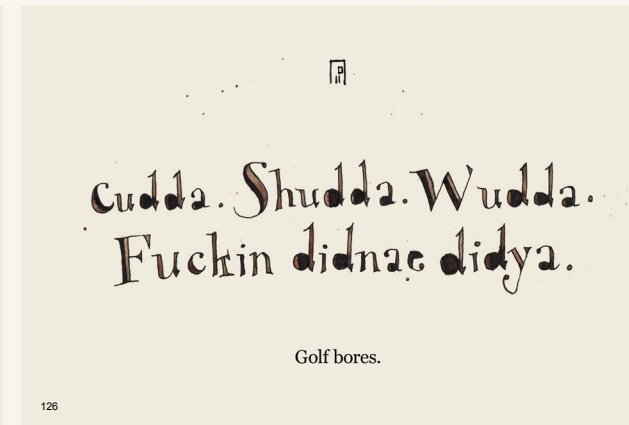 Cudda. Shudda. Wudda.
Fuckin didnae didya.
Golf bores.
126